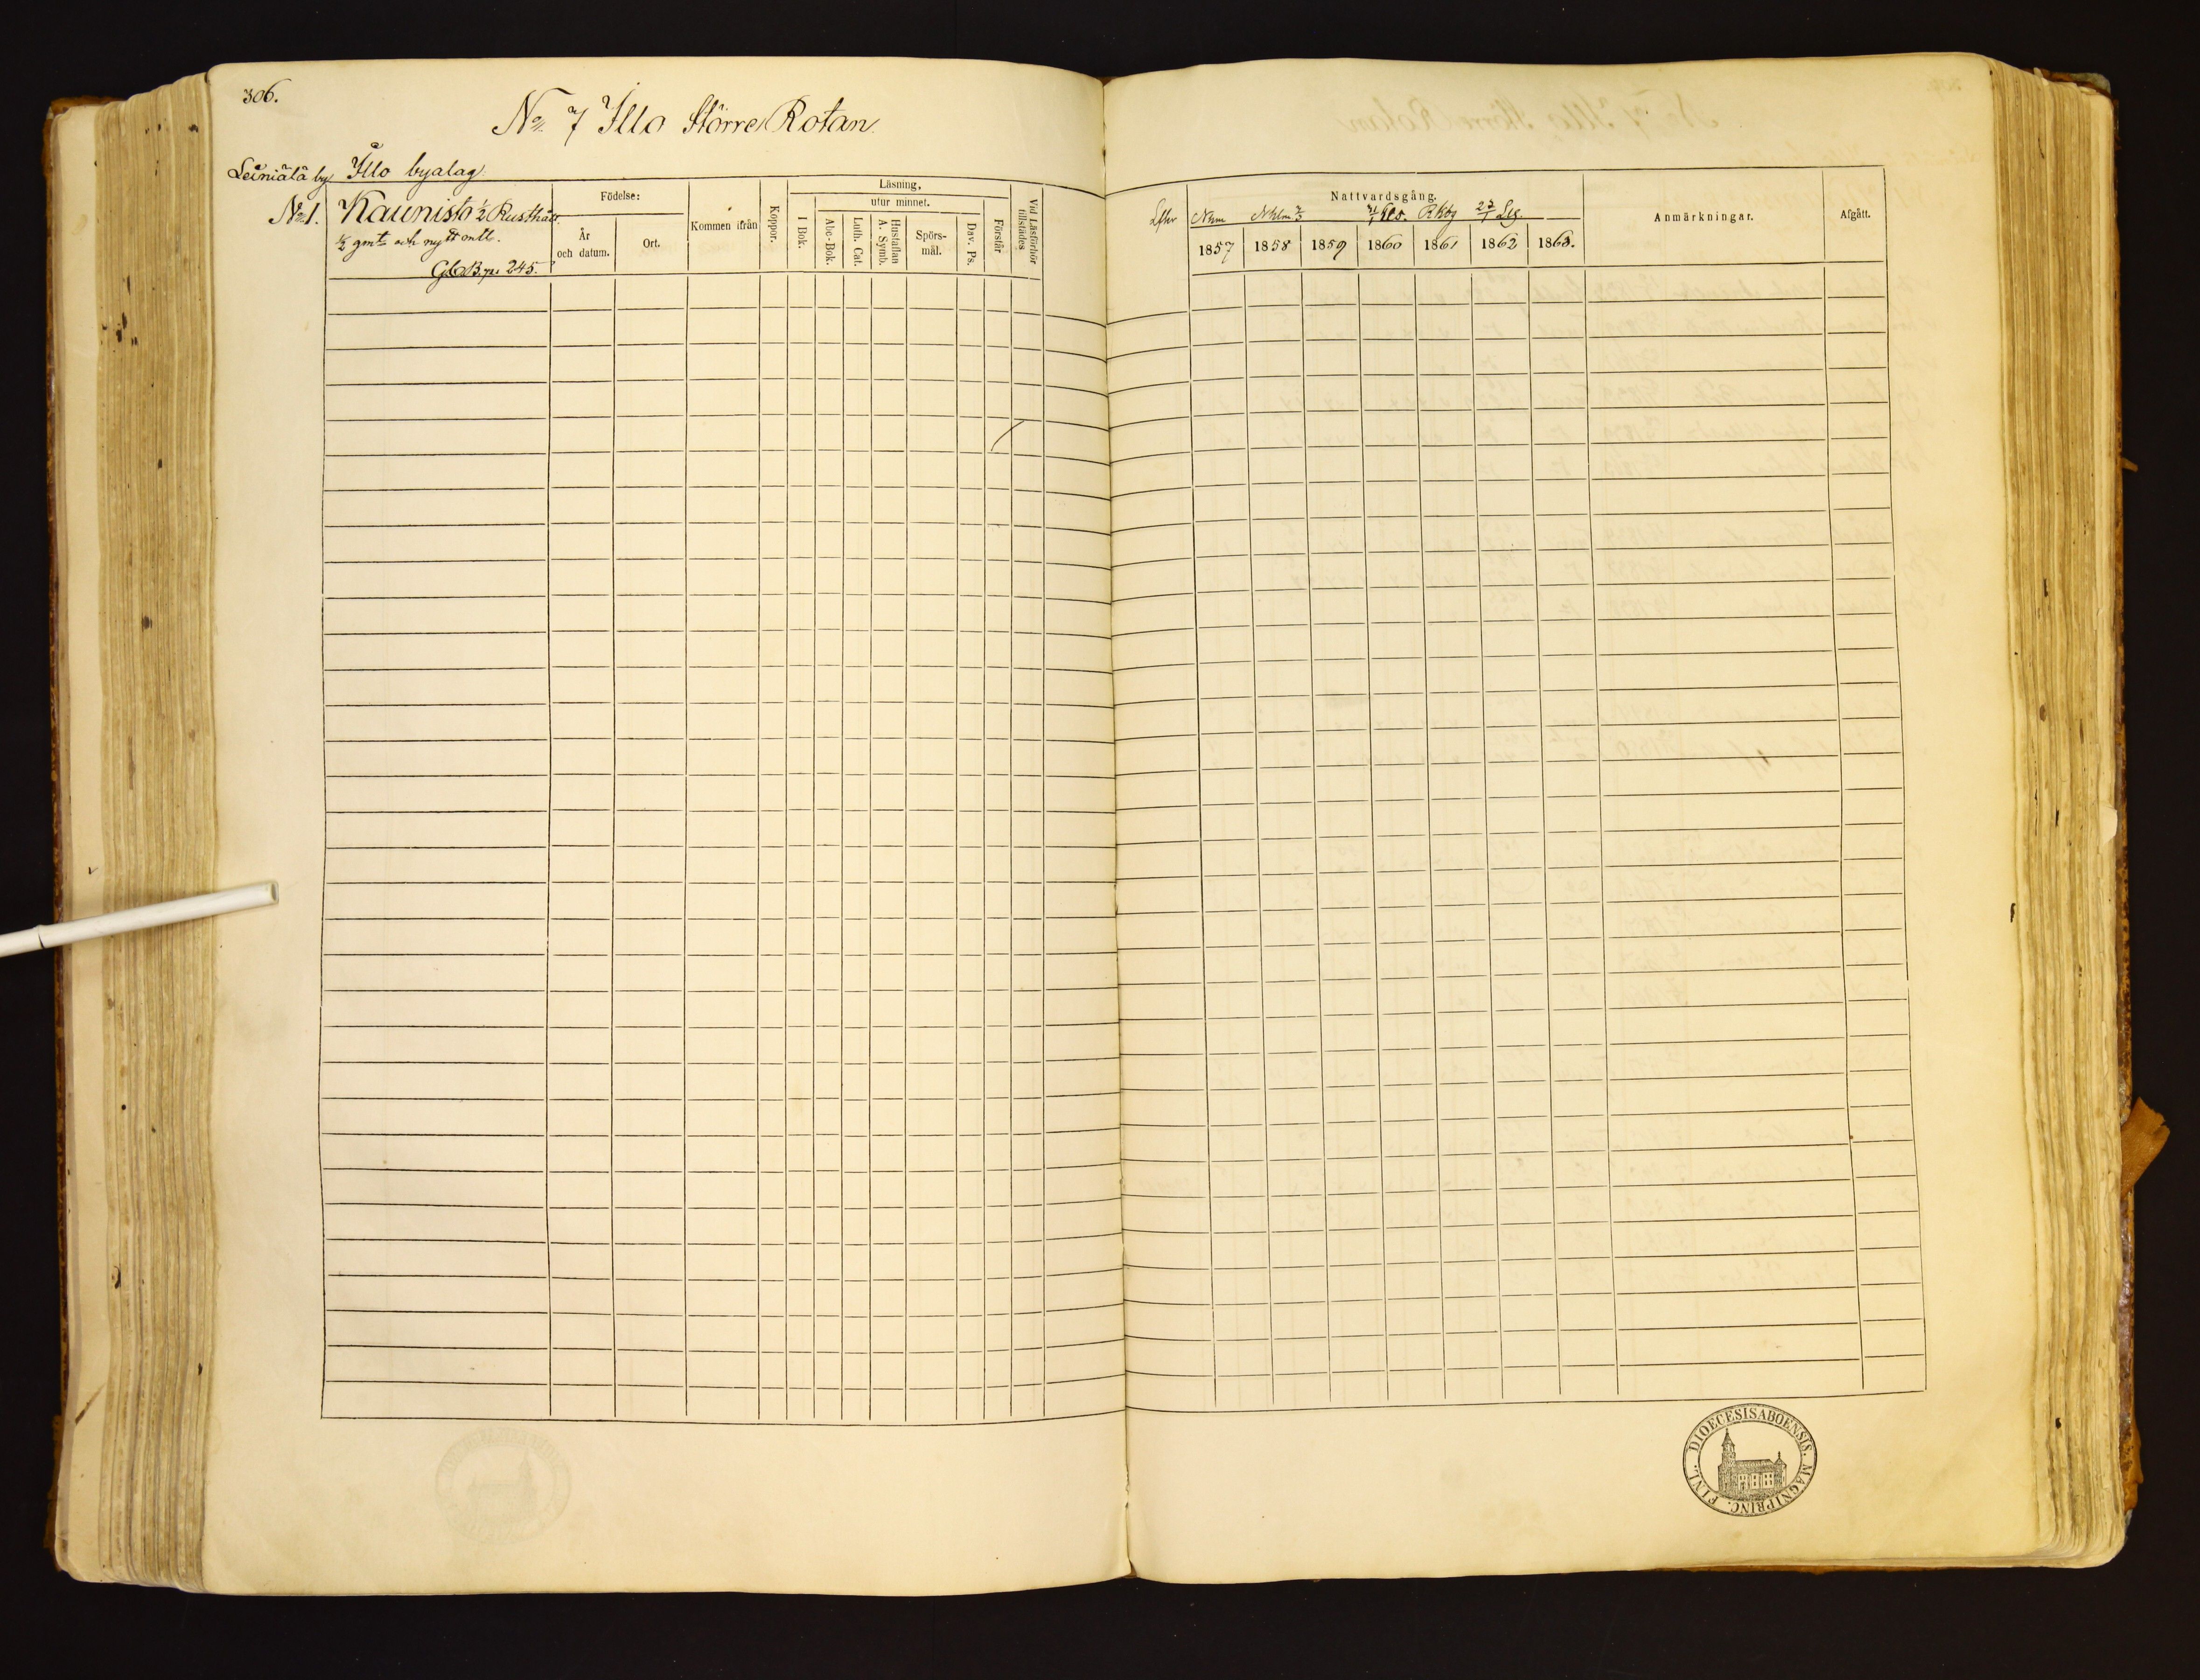 306.
No 7 Illo Större Rotan.
Leiniälä by Illo byalag.
No 1. Kaunisto ½ Rusthåll.
½ gmt och nytt ontl.
Gla B. pa 245.
Födelse:
År och datum.
Ort.
Kommen ifrån
Koppor.
Läsning,
utur minnet.
I Bok.
Abc-Bok.
Luth. Cat.
Hustaflan A. Symb.
Spörs-mål.
Dav. Ps.
Förstår
Vid Läsförhör tillstädes
Nattvardsgång.
1857 1858 1859 1860 1861 1862 1863.
Anmärkningar.
Afgått.
DIOECESISABOENSIS. MAGNIPRINC. FINL.